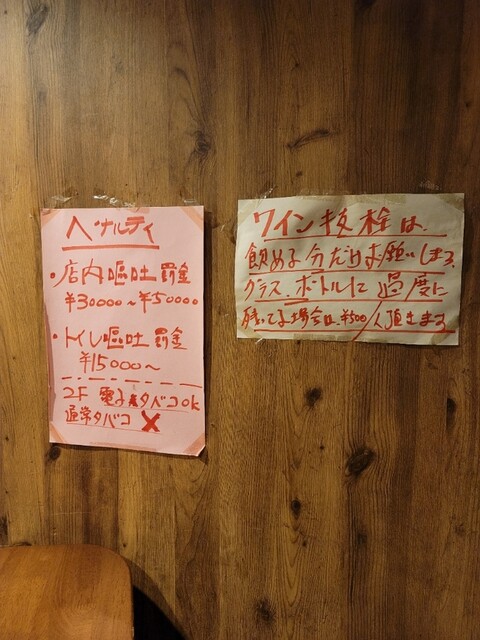 ペナルティ
・店内嘔吐罰金
¥30000～¥50000
・トイレ嘔吐罰金
¥15000～
2F 電子タバコok
通常タバコ ×
ワイン抜栓は、
飲める分だけお願いします、
グラス、ボトルに過度に
残ってる場合は、¥500/人頂きます